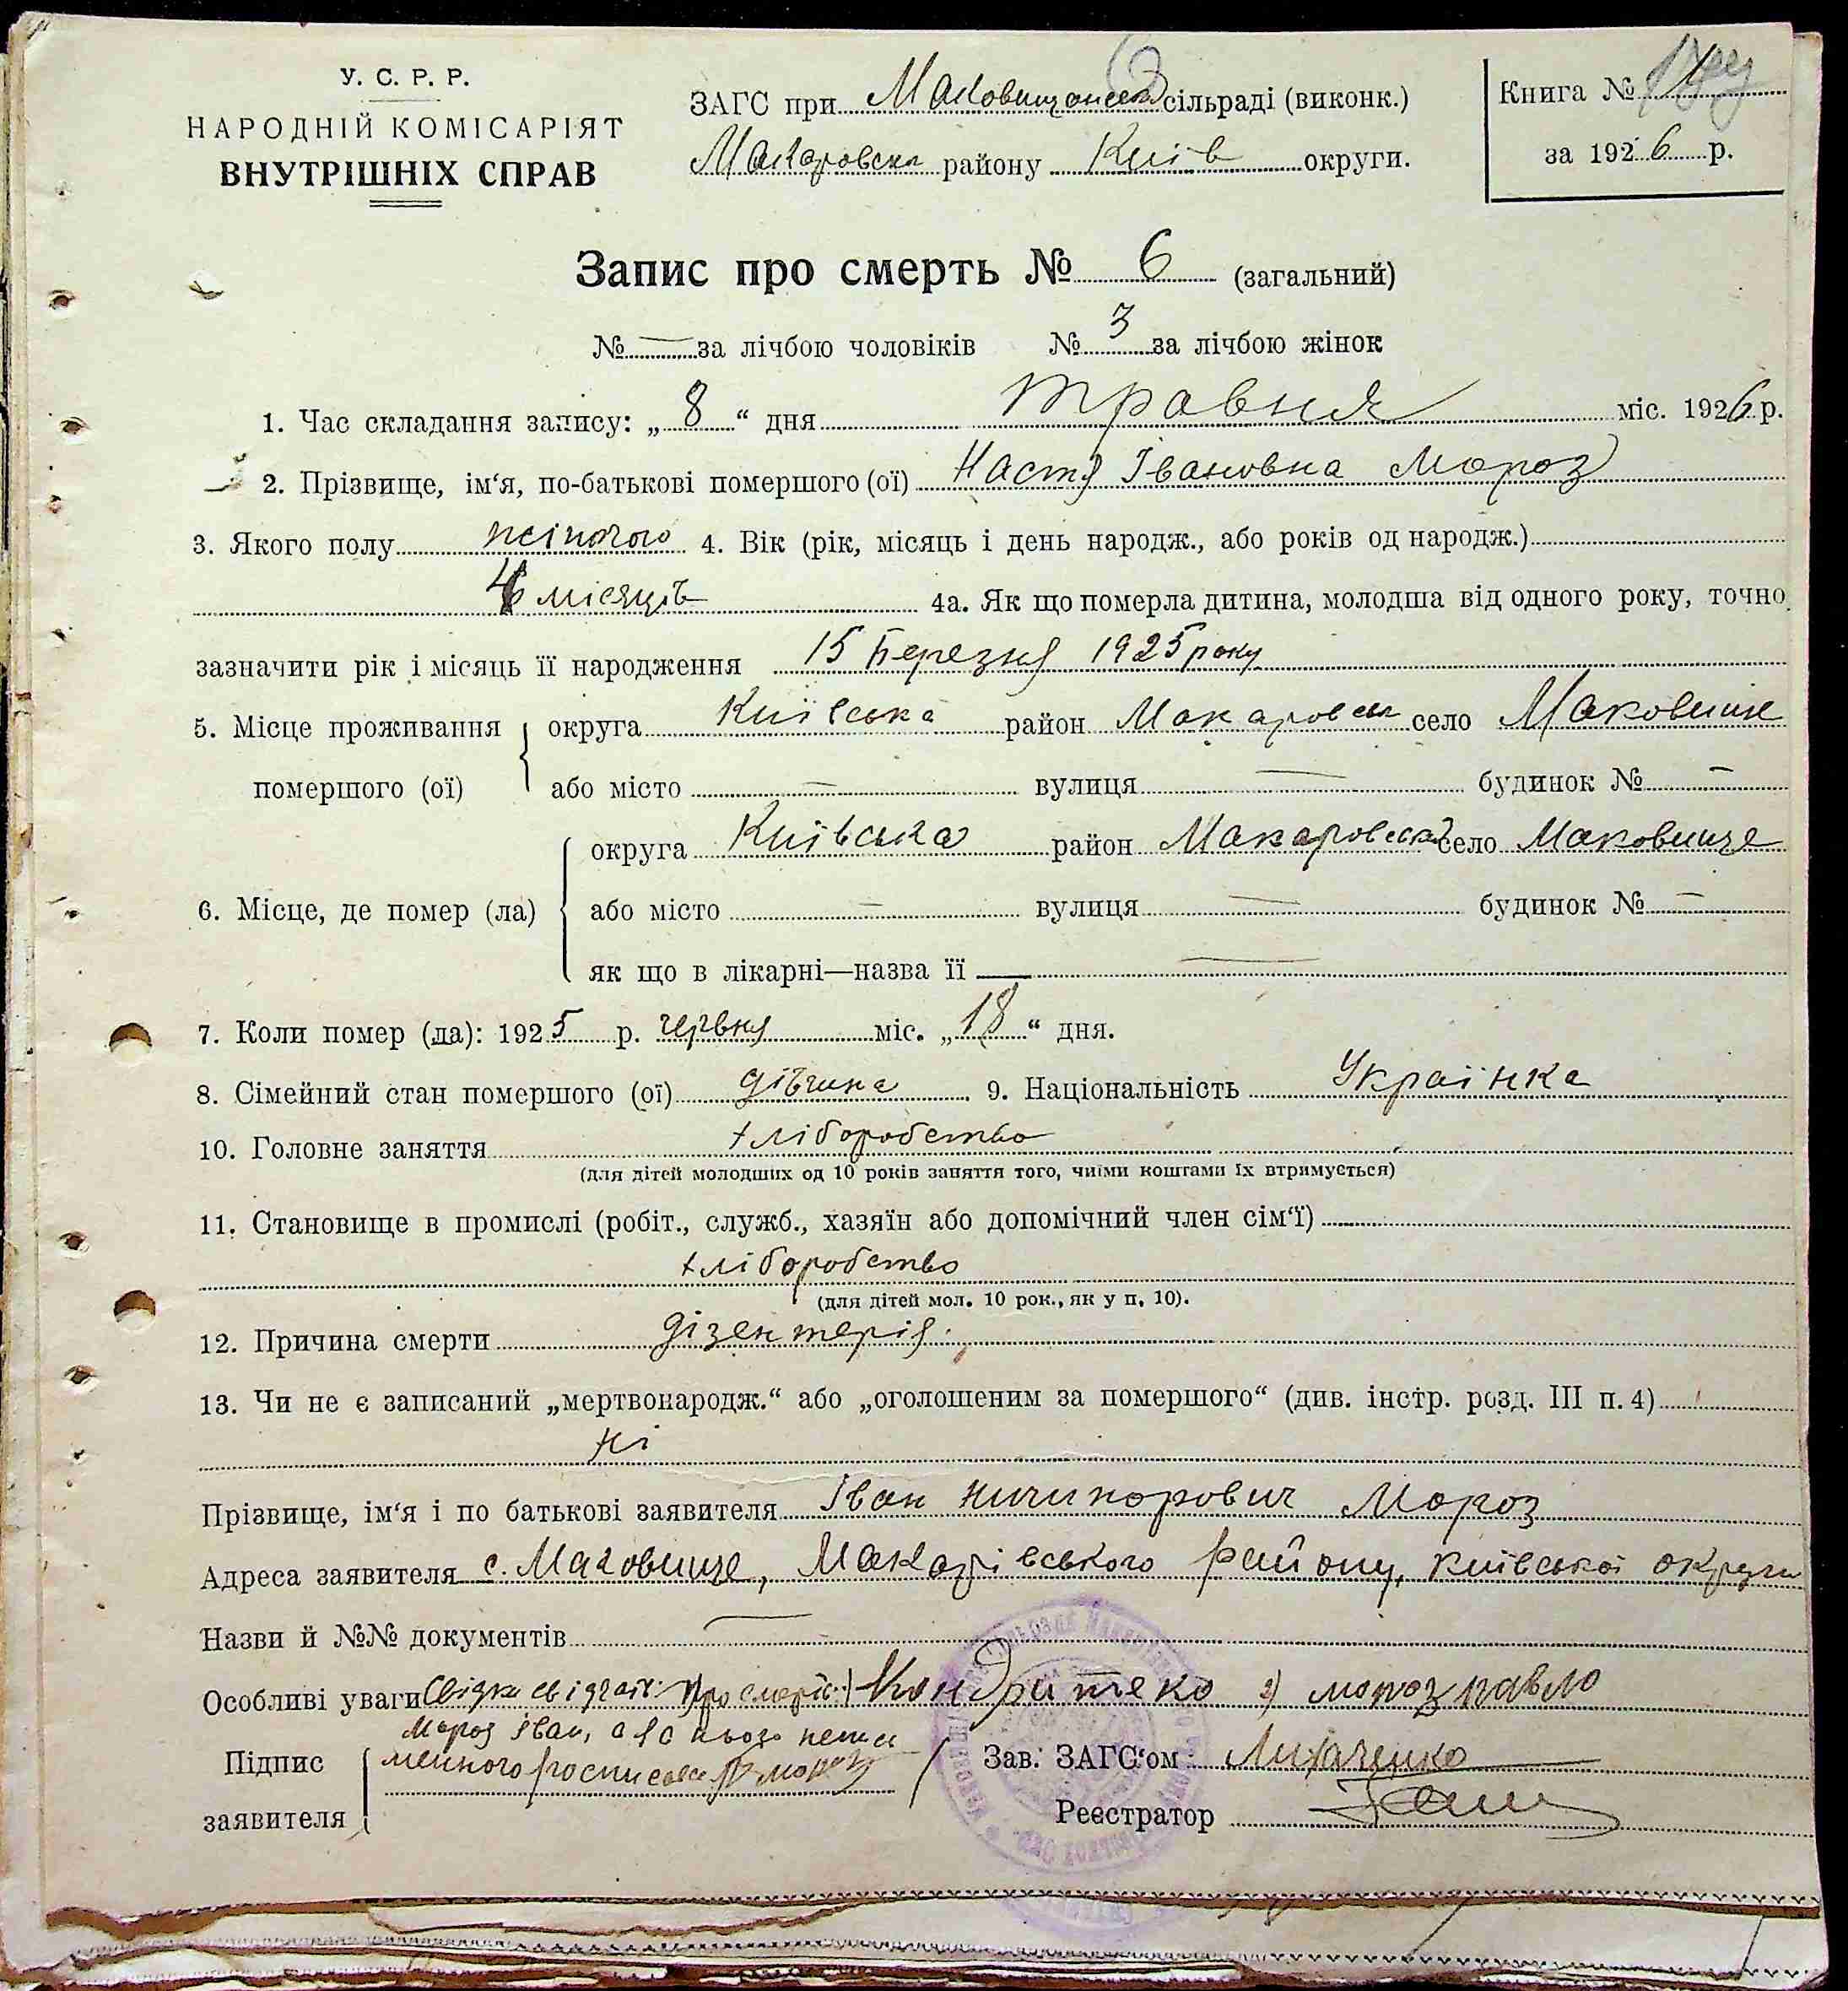 У. С. Р. Р.
НАРОДНІЙ КОМІСАРІЯТ
ВНУТРІШНІХ СПРАВ
ЗАГС при Маковищанськ сільраді (виконк.)
Макаровськ району Київ округи.
Книга №
за 1926 р.
Запис про смерть № 6 (загальний)
№ — за лічбою чоловіків № 3 за лічбою жінок
1. Час складання запису: „ 8 “ дня травня міс. 1926 р.
2. Прізвище, ім‘я, по-батькові помершого (ої) Настя Івановна Мороз
3. Якого полу жіночого 4. Вік (рік, місяць і день народж., або років од народж.)
місяців 4а. Як що померла дитина, молодша від одного року, точно
зазначити рік і місяць її народження 15 Березня 1925 року
5. Місце проживання помершого (ої) округа Київська район Макаровськ село Маковище
або місто — вулиця — будинок № —
6. Місце, де помер (ла) округа Київська район Макаровськ село Маковище
або місто — вулиця — будинок № —
як що в лікарні—назва її —
7. Коли помер (ла): 1925 р. червня міс. „ 18 “ дня.
8. Сімейний стан помершого (ої) дівчина 9. Національність Українка
10. Головне заняття хліборобство
(для дітей молодших од 10 років заняття того, чиїми коштами їх втримується)
11. Становище в промислі (робіт., служб., хазяїн або допомічний член сім‘ї)
хліборобство
(для дітей мол. 10 рок., як у п. 10).
12. Причина смерти дізентерія.
13. Чи не є записаний „мертвонародж.“ або „оголошеним за помершого“ (див. інстр. розд. III п. 4)
ні
Прізвище, ім‘я і по батькові заявителя Іван Ничипорович Мороз
Адреса заявителя с. Маковище, Макарівського району, Київської округи
Назви й №№ документів —
Особливі уваги Свідки про смерть 2) мороз павло
Мороз Іван, а за нього неписьменного росписався
Підпис заявителя
Зав. ЗАГС‘ом:
Реєстратор